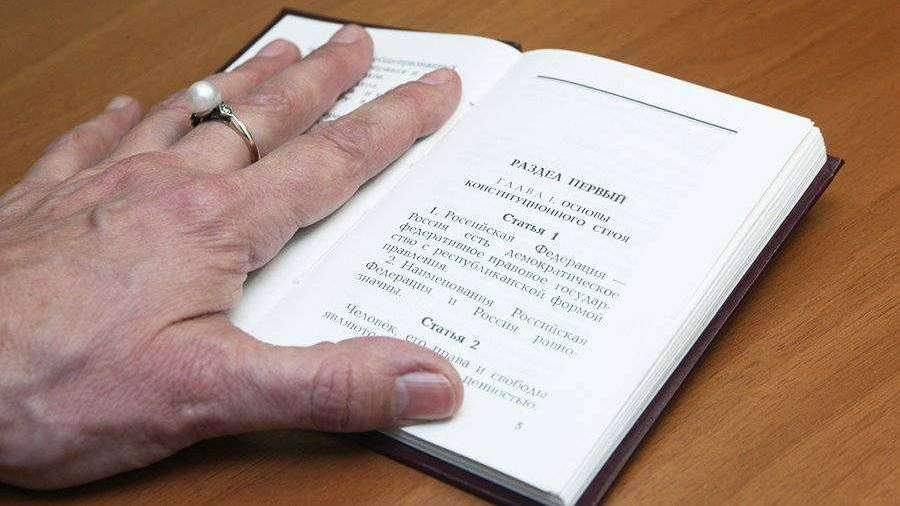 РАЗДЕЛ ПЕРВЫЙ
ГЛАВА 1. ОСНОВЫ
КОНСТИТУЦИОННОГО СТРОЯ
Статья 1
1. Российская Федерация —
Россия есть демократическое
федеративное правовое государ-
ство с республиканской формой
правления.
2. Наименования Российская
Федерация и Россия равно-
значны.
Статья 2
Человек, его права и свободы
ценностью.
5